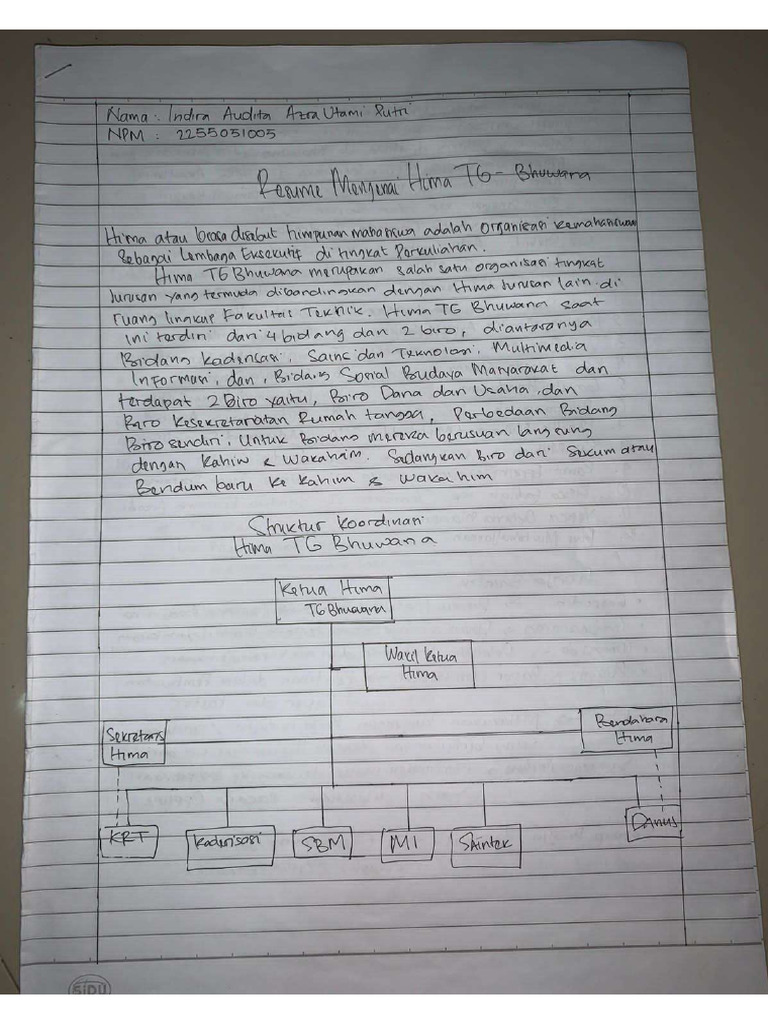 Nama : Indira Audita Azra Utami Putri
NPM : 2255051005
Resume Mengenai Hima TG - Bhuwana
Hima atau biasa disebut himpunan mahasiswa adalah organisasi kemahasiswaan
sebagai Lembaga Eksekutif di tingkat Perkuliahan.
Hima TG Bhuwana merupakan salah satu organisasi tingkat
Jurusan yang termuda dibandingkan dengan Hima Jurusan lain di
ruang lingkup Fakultas Teknik. Hima TG Bhuwana saat
ini terdiri dari 4 bidang dan 2 biro, diantaranya
Bidang Kaderisasi, Sains dan Teknologi, Multimedia
Informasi, dan, Bidang Sosial Budaya Masyarakat dan
terdapat 2 Biro yaitu, Biro Dana dan Usaha, dan
Biro Kesekretariatan Rumah tangga, Perbedaan Bidang
Biro sendiri, Untuk Bidang mereka berusuan langsung
dengan Kahim & Wakahim. Sedangkan Biro dari Sekum atau
Bendum baru ke kahim & wakahim
Struktur Koordinasi
Hima TG Bhuwana
Ketua Hima
TG Bhuwana
Wakil Ketua
Hima
Sekretaris
Hima
Bendahara
Hima
KRT
Kaderisasi
SBM
MI
SAintek
Danus
SiDU